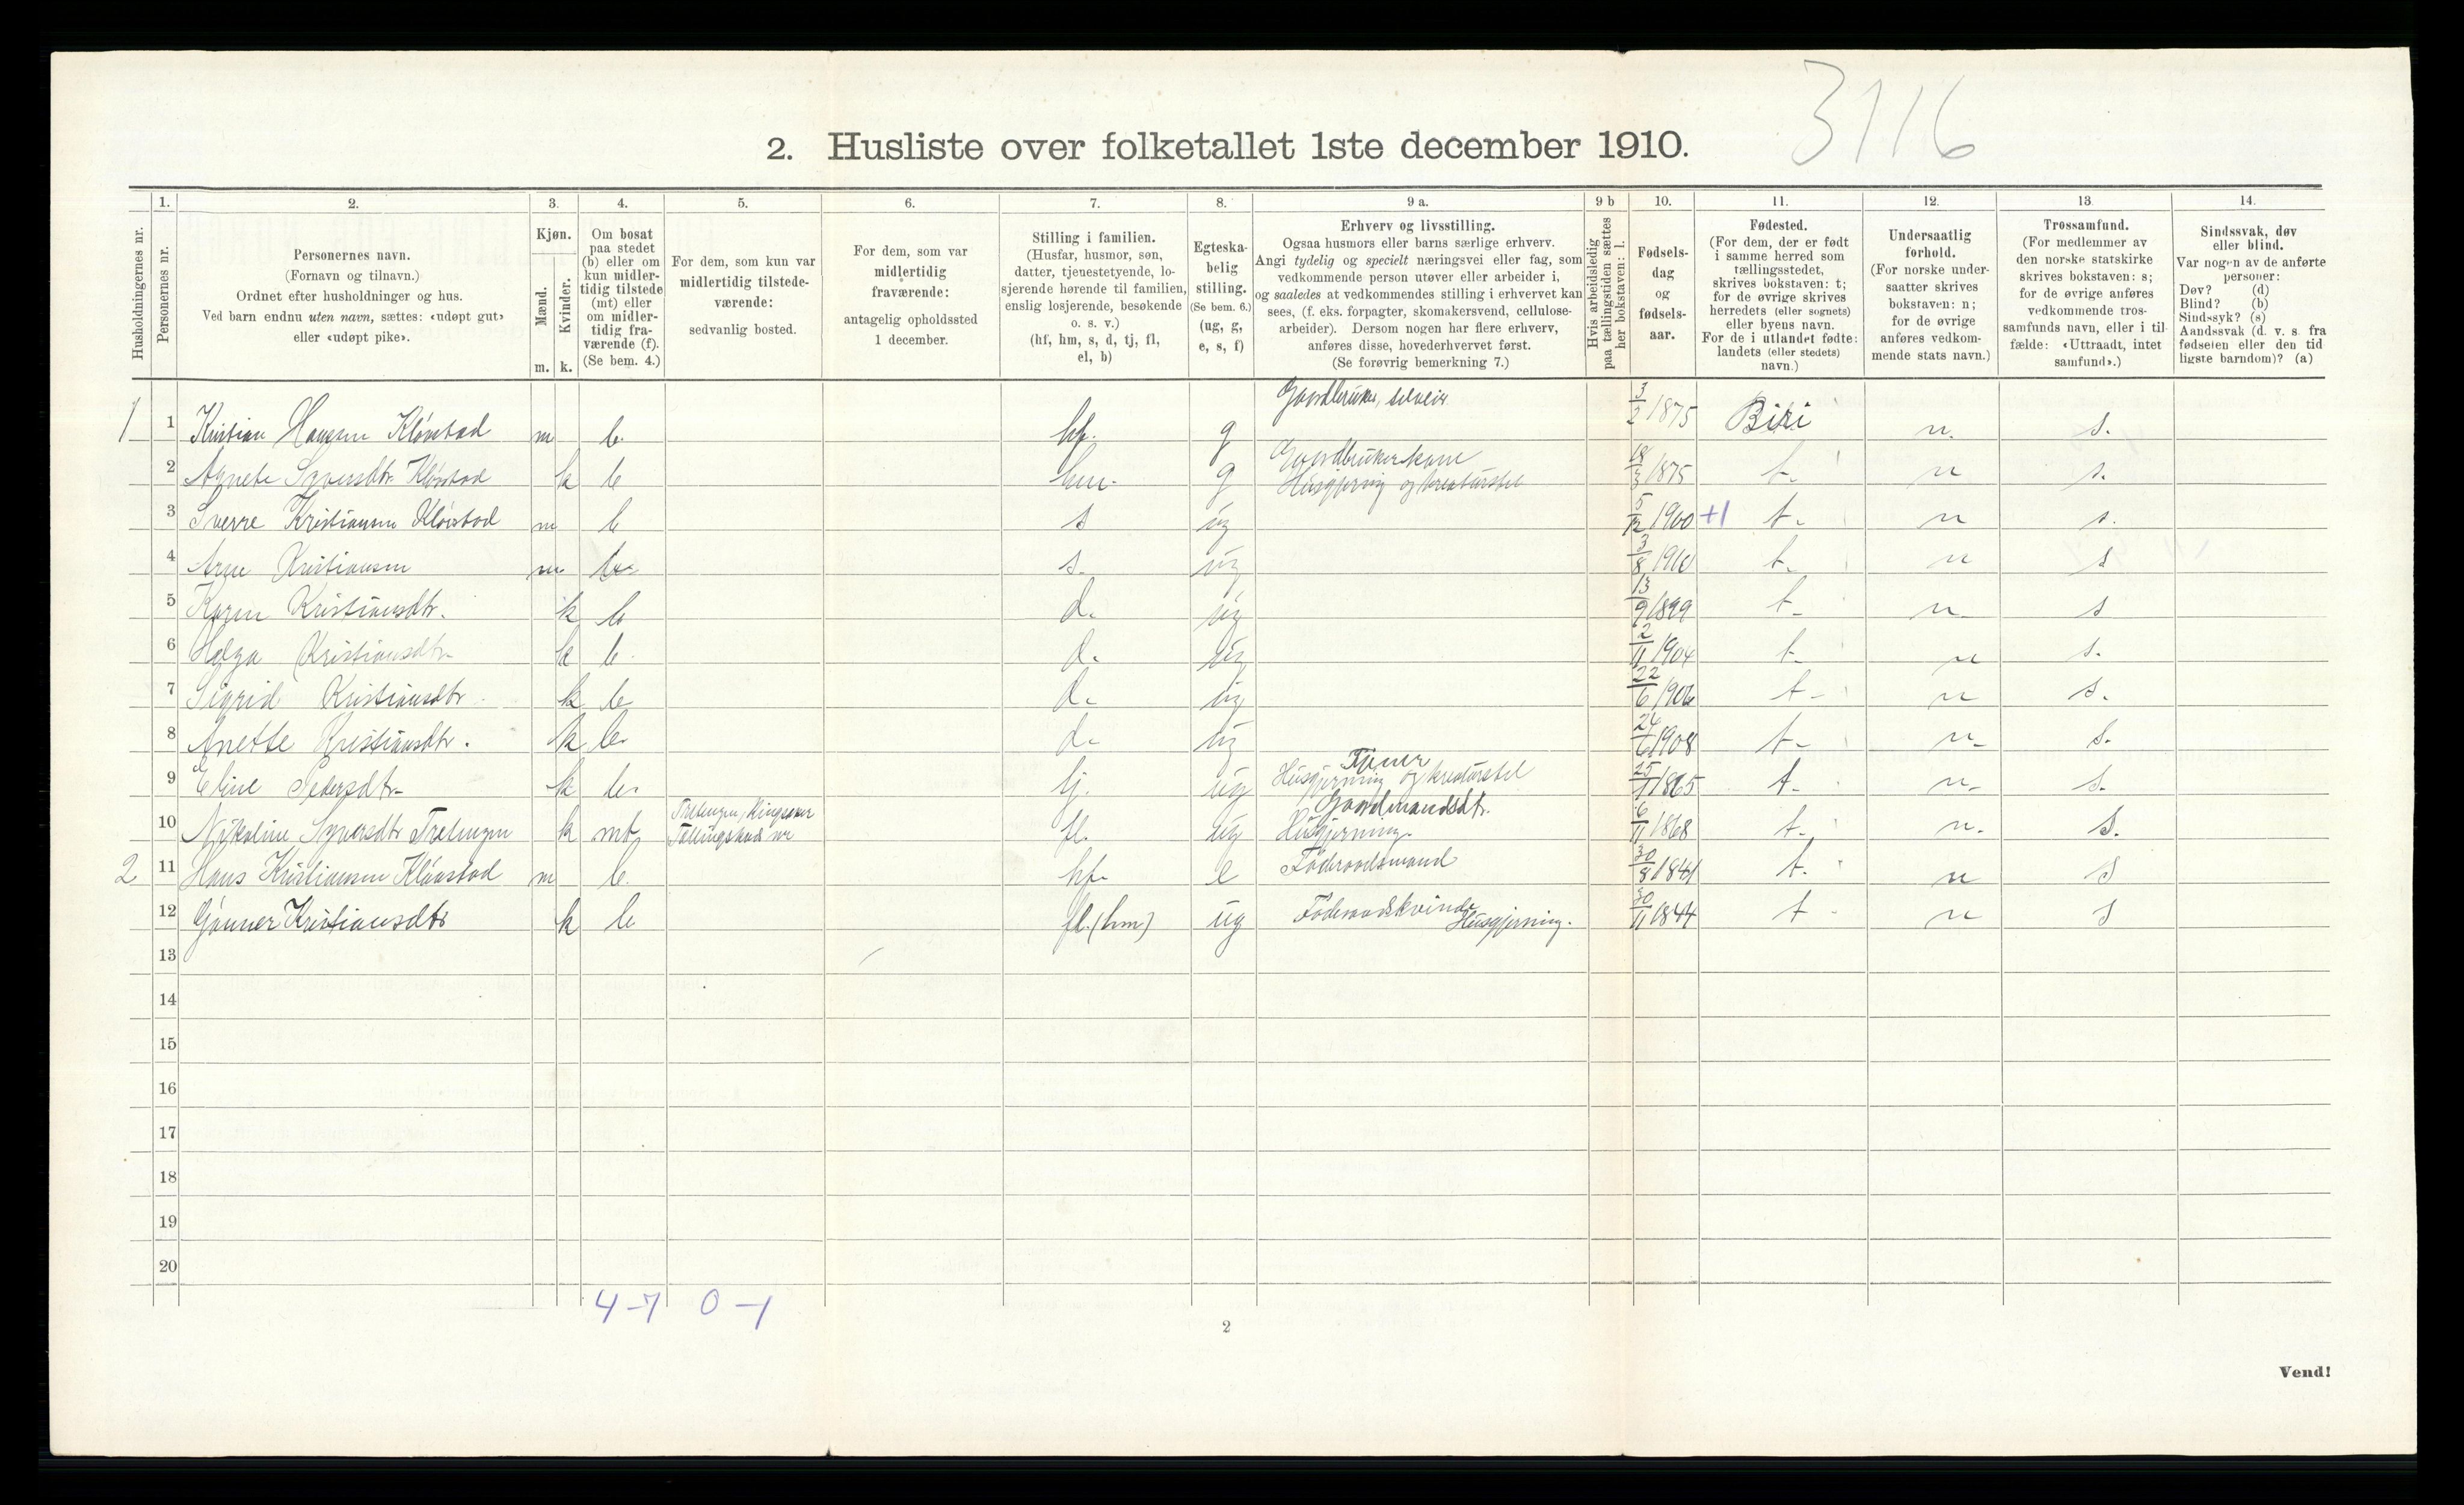 3116
2. Husliste over folketallet 1ste december 1910.
Husholdningernes nr.
Personernes nr.
1.
2.
Personernes navn.
(Fornavn og tilnavn.)
Ordnet efter husholdninger og hus.
Ved barn endnu uten navn, sættes: «udøpt gut»
eller «udøpt pike».
3.
Kjøn.
Mænd.
Kvinder.
m. k.
4.
Om bosat
paa stedet
(b) eller om
kun midler-
tidig tilstede
(mt) eller
om midler-
tidig fra-
værende (f).
(Se bem. 4.)
5.
For dem, som kun var
midlertidig tilstede-
værende:
sedvanlig bosted.
6.
For dem, som var
midlertidig
fraværende:
antagelig opholdssted
1 december.
7.
Stilling i familien.
(Husfar, husmor, søn,
datter, tjenestetyende, lo-
sjerende hørende til familien,
enslig losjerende, besøkende
o. s. v.)
(hf, hm, s, d, tj, fl,
el, b)
8.
Egteska-
belig
stilling.
(Se bem. 6.)
(ug, g,
e, s, f)
9 a.
Erhverv og livsstilling.
Ogsaa husmors eller barns særlige erhverv.
Angi tydelig og specielt næringsvei eller fag, som
vedkommende person utøver eller arbeider i,
og saaledes at vedkommendes stilling i erhvervet kan
sees, (f. eks. forpagter, skomakersvend, cellulose-
arbeider). Dersom nogen har flere erhverv,
anføres disse, hovederhvervet først.
(Se forøvrig bemerkning 7.)
9 b
Hvis arbeidsledig
paa tællingstiden sættes
her bokstaven: l.
10.
Fødsels-
dag
og
fødsels-
aar.
11.
Fødested.
(For dem, der er født
i samme herred som
tællingsstedet,
skrives bokstaven: t;
for de øvrige skrives
herredets (eller sognets)
eller byens navn.
For de i utlandet fødte:
landets (eller stedets)
navn.)
12.
Undersaatlig
forhold.
(For norske under-
saatter skrives
bokstaven: n;
for de øvrige
anføres vedkom-
mende stats navn.)
13
Trossamfund.
(For medlemmer av
den norske statskirke
skrives bokstaven: s;
for de øvrige anføres
vedkommende tros-
samfunds navn, eller i til-
fælde: «Uttraadt, intet
samfund».)
14.
Sindssvak, døv
eller blind.
Var nogen av de anførte
personer:
Døv? (d)
Blind? (b)
Sindssyk? (s)
Aandssvak (d. v. s. fra
fødselen eller den tid-
ligste barndom)? (a)
1 1 Kristian Hansen Kløvstad m b. hf. g Gaardbruker, selveier 3/2 1875 Biri n. s.
2 Agnete Syversdtr. Kløvstad k b hm. g Gaardbrukerkone Husgjerning og kreaturstel 18/3 1875 t. n s.
3 Sverre Kristiansen Kløvstad m b s ug 5/12 1900 +1 t. n s.
4 Arne Kristiansen m b s. ug 3/8 1910 t. n s
5 Karen Kristiansdtr. k b d. ug 13/9 1899 t. n s
6 Helga Kristiansdtr. k b. d. ug 2/11 1904 t. n s.
7 Sigrid Kristiansdtr. k b d. ug 22/6 1906 t. n s.
8 Anette Kristiansdtr. k b. d. ug 24/6 1908 t. n. s.
9 Eline Pedersdtr. k b. tj. ug Husgjerning og kreaturstel 25/1 1865 t. n. s.
10 Nikoline Syversdtr k mt fl. ug Gaardmandsdtr. Husgjerning. 6/11 1868 t. n. s.
2 11 Hans Kristiansen Kløvstad m b. hf. e Føderaadsmand 30/8 1841 t. n s
12 Gunner Kristiansdtr k b fl. (hm) ug Føderaadskvinde Husgjerning. 30/11 1844 t. n s
13
14
15
16
17
18
19
20
4-7 0-1
2
Vend!